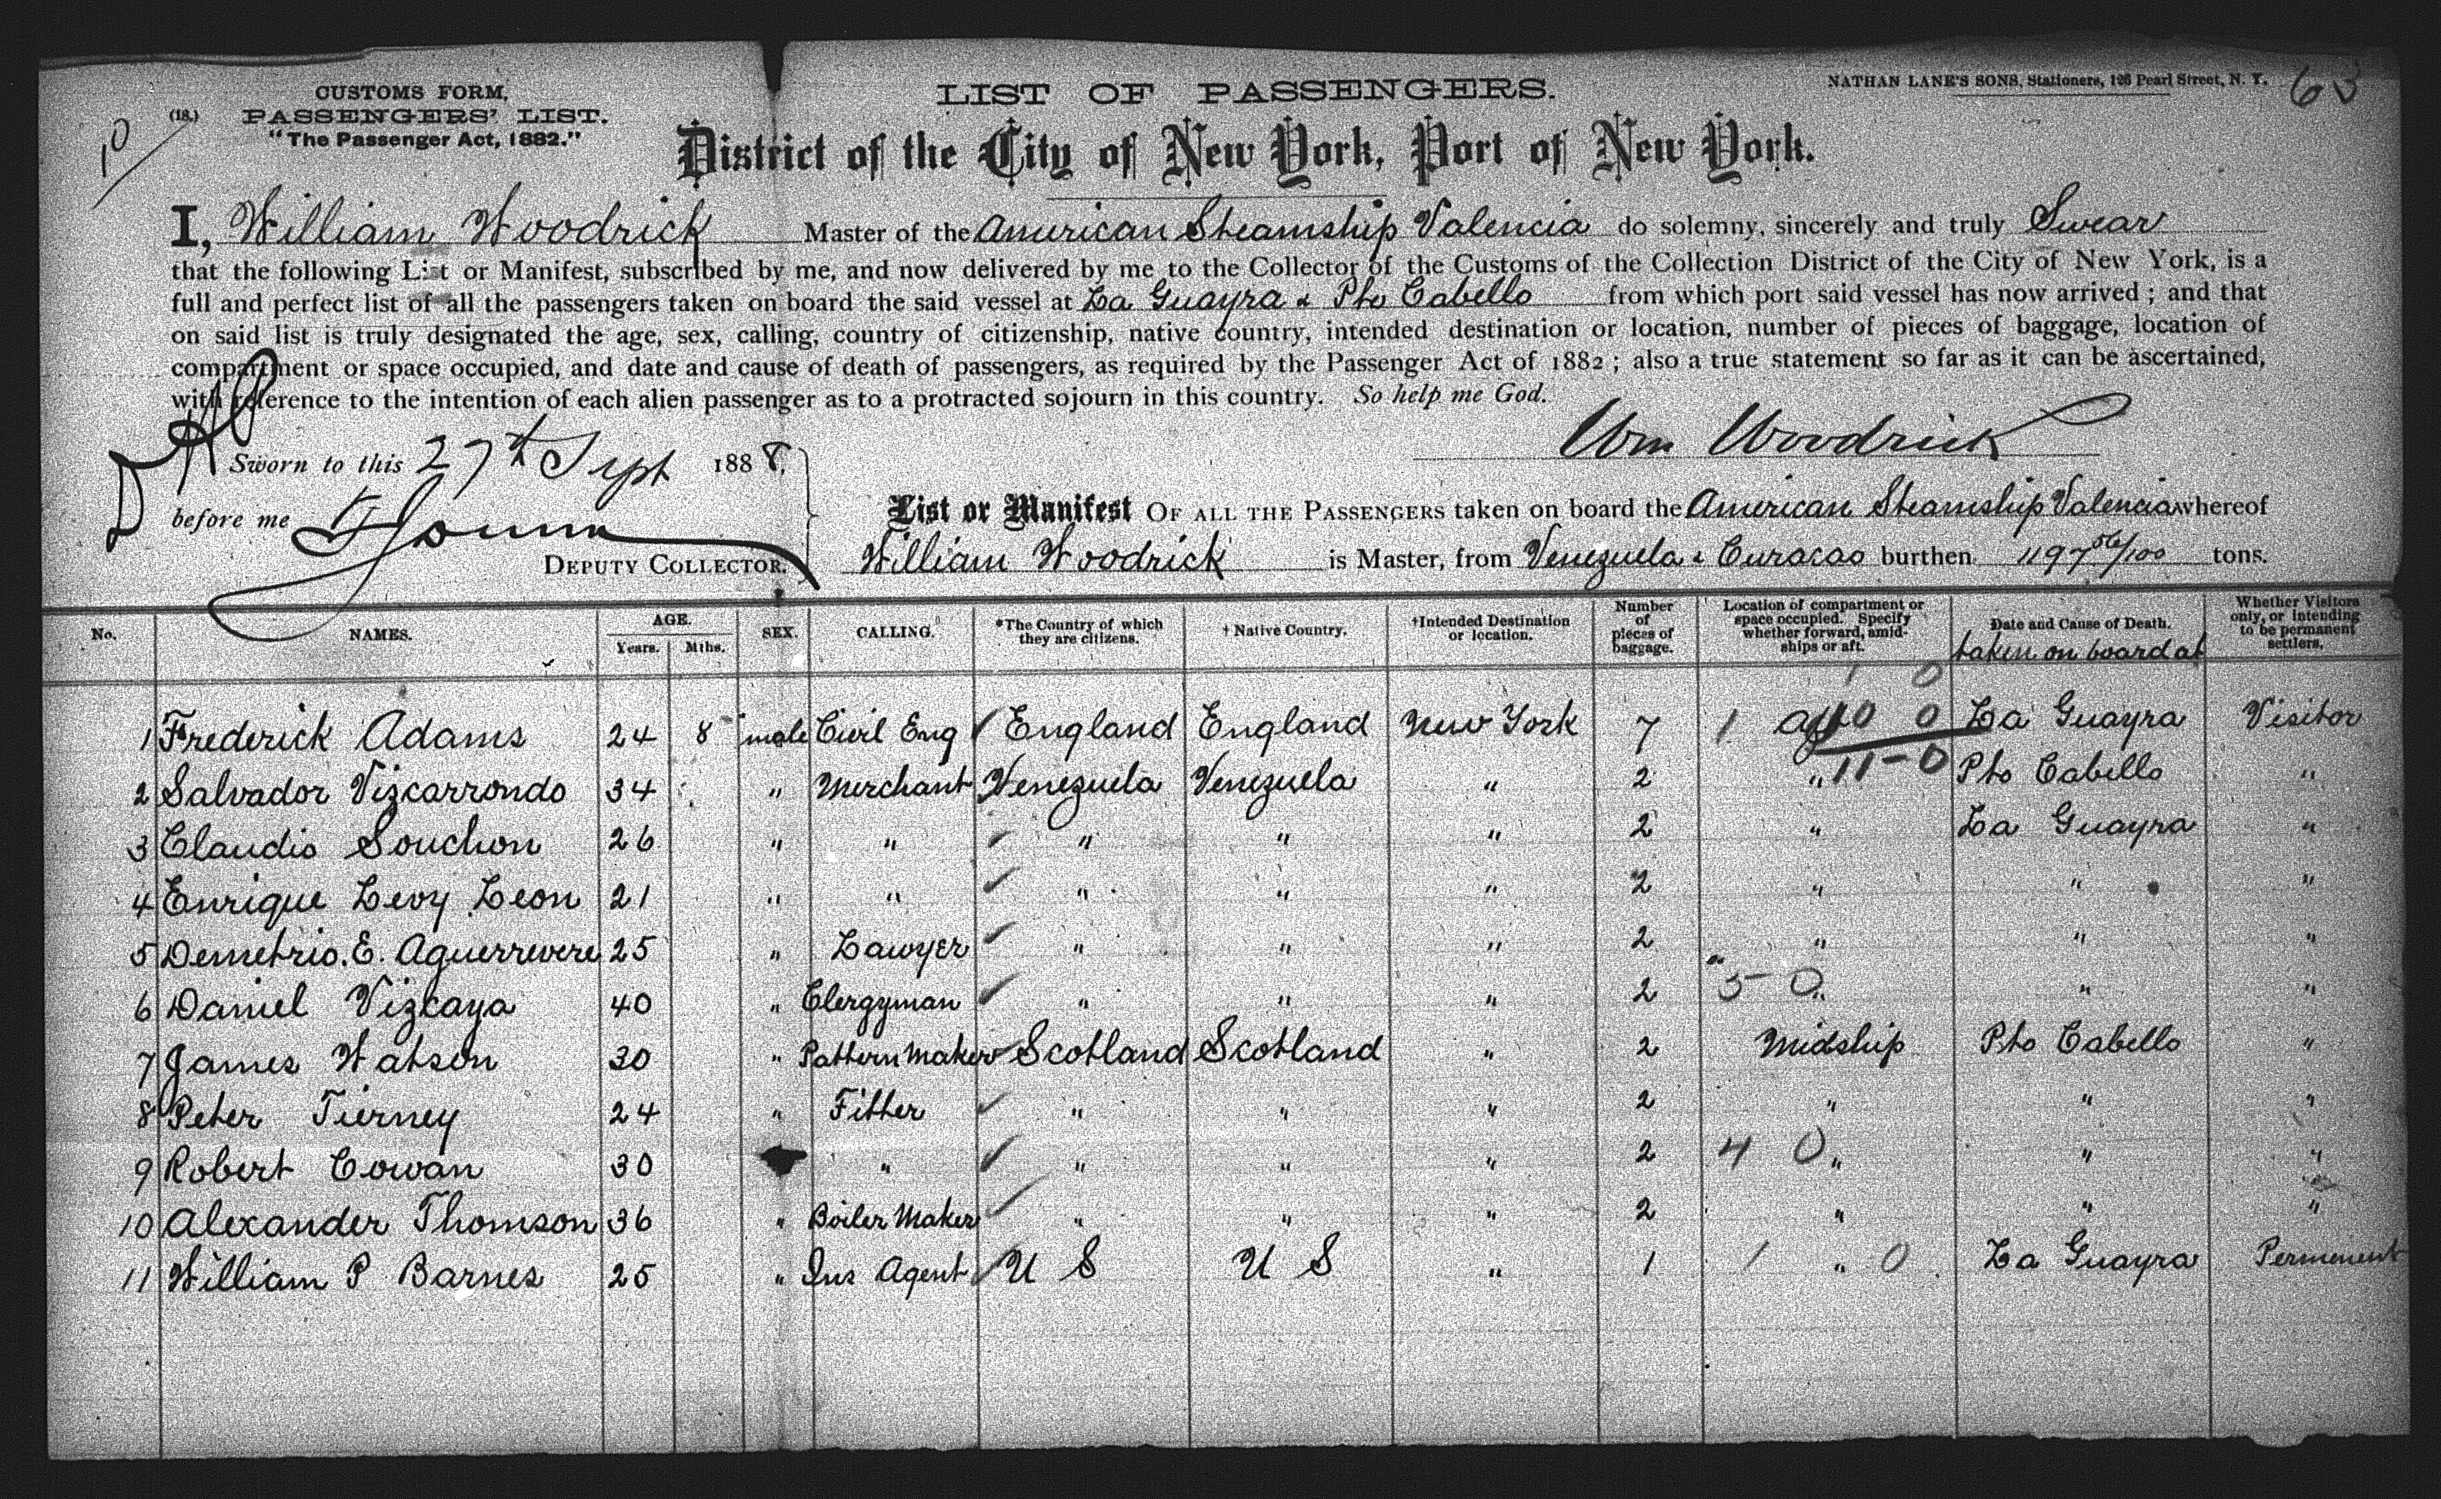 CUSTOMS FORM,
(18.) PASSENGERS' LIST.
"The Passenger Act, 1882."
10
LIST OF PASSENGERS.
NATHAN LANE'S SONS, Stationers, 126 Pearl Street, N. Y.
63
District of the City of New York, Port of New York.
I, William Woodrick Master of the American Steamship Valencia do solemny, sincerely and truly Swear
that the following List or Manifest, subscribed by me, and now delivered by me to the Collector of the Customs of the Collection District of the City of New York, is a
full and perfect list of all the passengers taken on board the said vessel at La Guayra & Pto Cabello from which port said vessel has now arrived; and that
on said list is truly designated the age, sex, calling, country of citizenship, native country, intended destination or location, number of pieces of baggage, location of
compartment or space occupied, and date and cause of death of passengers, as required by the Passenger Act of 1882; also a true statement so far as it can be ascertained,
with reference to the intention of each alien passenger as to a protracted sojourn in this country. So help me God.
Wm Woodrick
Sworn to this 27th Sept 1888.
before me
DEPUTY COLLECTOR.
List or Manifest OF ALL THE PASSENGERS taken on board the American Steamship Valencia whereof
William Woodrick is Master, from Venezuela & Curacao burthen 1197 56/100 tons.
No. NAMES. AGE. Years. Mths. SEX. CALLING. *The Country of which they are citizens. †Native Country. †Intended Destination or location. Number of pieces of baggage. Location of compartment or space occupied. Specify whether forward, amidships or aft. Date and Cause of Death. taken on board at Whether Visitors only, or intending to be permanent settlers.
1 0
1 Frederick Adams 24 8 male Civil Eng England England New York 7 1 aft 10 0 La Guayra Visitor
2 Salvador Vizcarrondo 34 " Merchant Venezuela Venezuela " 2 " 11-0 Pto Cabello "
3 Claudio Souchon 26 " " " " " 2 " La Guayra "
4 Enrique Levy Leon 21 " " " " " 2 " " "
5 Demetrio. E. Aguerrevere 25 " Lawyer " " " 2 " " "
6 Daniel Vizcaya 40 " Clergyman " " " 2 5 0 " " "
7 James Watson 30 " Pattern Maker Scotland Scotland " 2 Midship Pto Cabello "
8 Peter Tierney 24 " Fitter " " " 2 " " "
9 Robert Cowan 30 " " " " 2 4 0 " " "
10 Alexander Thomson 36 " Boiler Maker " " " 2 " " "
11 William P Barnes 25 " Ins Agent U S U S " 1 1 " 0 La Guayra Permenent